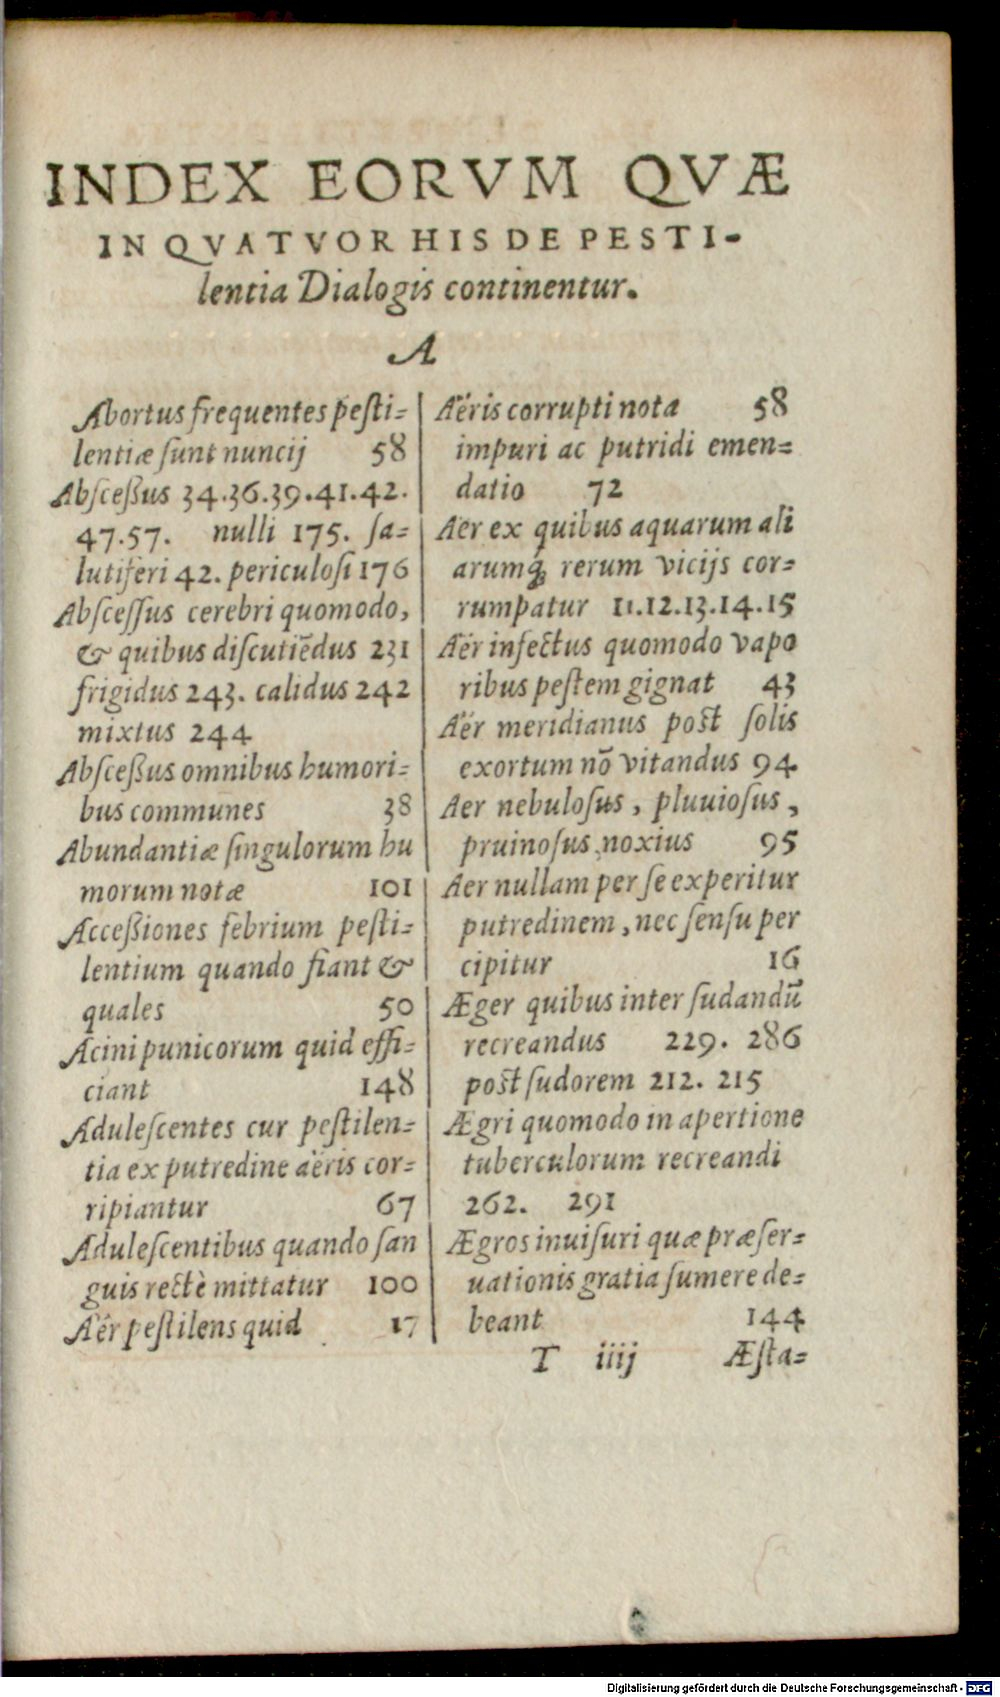 INDEX EORVM QVÆ
IN QVATVOR HIS DE PESTI-
lentia Dialogis continentur.
A
Abortus frequentes peſti=
lentiæ ſunt nuncij 58
Abſceßus 34.36.39.41.42.
47.57. nulli 175. ſa=
lutiferi 42. periculoſi 176
Abſceſſus cerebri quomodo,
& quibus diſcutiēdus 231
frigidus 243. calidus 242
mixtus 244
Abſceßus omnibus humori=
bus communes 38
Abundantiæ ſingulorum hu
morum notæ 101
Acceßiones febrium peſti=
lentium quando fiant &
quales 50
Acini punicorum quid effi=
ciant 148
Aduleſcentes cur peſtilen=
tia ex putredine aëris cor=
ripiantur 67
Aduleſcentibus quando ſan
guis rectè mittatur 100
Aër peſtilens quid 17
Aëris corrupti nota 58
impuri ac putridi emen=
datio 72
Aër ex quibus aquarum ali
arumq́; rerum vicijs cor=
rumpatur 11.12.13.14.15
Aër infectus quomodo vapo
ribus peſtem gignat 43
Aër meridianus poſt ſolis
exortum nō vitandus 94
Aer nebuloſus, pluuioſus,
pruinoſus, noxius 95
Aer nullam per ſe experitur
putredinem, nec ſenſu per
cipitur 16
Æger quibus inter ſudandū
recreandus 229. 286
poſt ſudorem 212. 215
Ægri quomodo in apertione
tuberculorum recreandi
262. 291
Ægros inuiſuri quæ præſer=
uationis gratia ſumere de=
beant 144
T iiij Æſta=
Digitalisierung gefördert durch die Deutsche Forschungsgemeinschaft - DFG